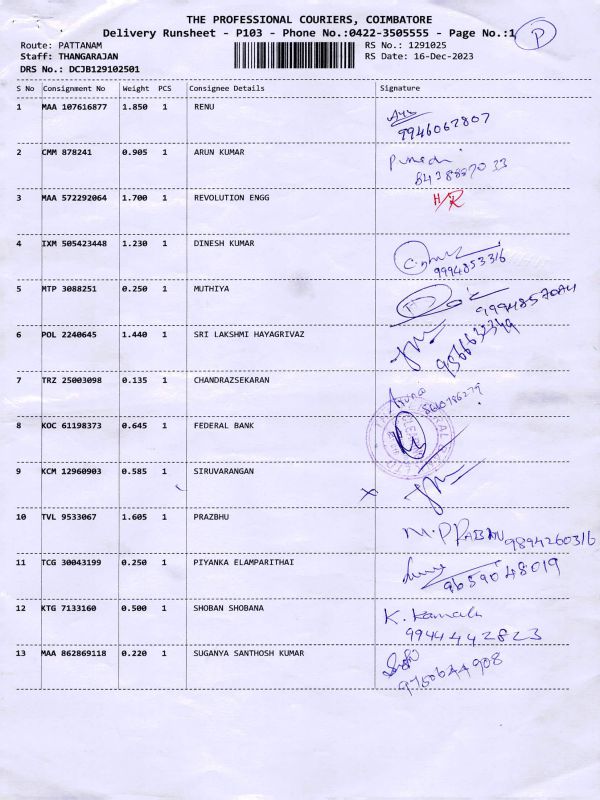 THE PROFESSIONAL COURIERS, COIMBATORE
Delivery Runsheet - P103 - Phone No.:0422-3505555 - Page No.:1 P
Route: PATTANAM RS No.: 1291025
Staff: THANGARAJAN RS Date: 16-Dec-2023
DRS No.: DCJB129102501
S No Consignment No Weight PCS Consignee Details Signature
1 MAA 107616877 1.850 1 RENU
9946062807
2 CMM 878241 0.905 1 ARUN KUMAR
3 MAA 572292064 1.700 1 REVOLUTION ENGG
4 IXM 505423448 1.230 1 DINESH KUMAR
9994853316
5 MTP 3088251 0.250 1 MUTHIYA
6 POL 2240645 1.440 1 SRI LAKSHMI HAYAGRIVAZ
7 TRZ 25003098 0.135 1 CHANDRAZSEKARAN
Aruna
8 KOC 61198373 0.645 1 FEDERAL BANK
9 KCM 12960903 0.585 1 SIRUVARANGAN
10 TVL 9533067 1.605 1 PRAZBHU
M.P PRABHU 9894260316
11 TCG 30043199 0.250 1 PIYANKA ELAMPARITHAI
9659048019
12 KTG 7133160 0.500 1 SHOBAN SHOBANA
K. Kamala
9944442823
13 MAA 862869118 0.220 1 SUGANYA SANTHOSH KUMAR
9750644908